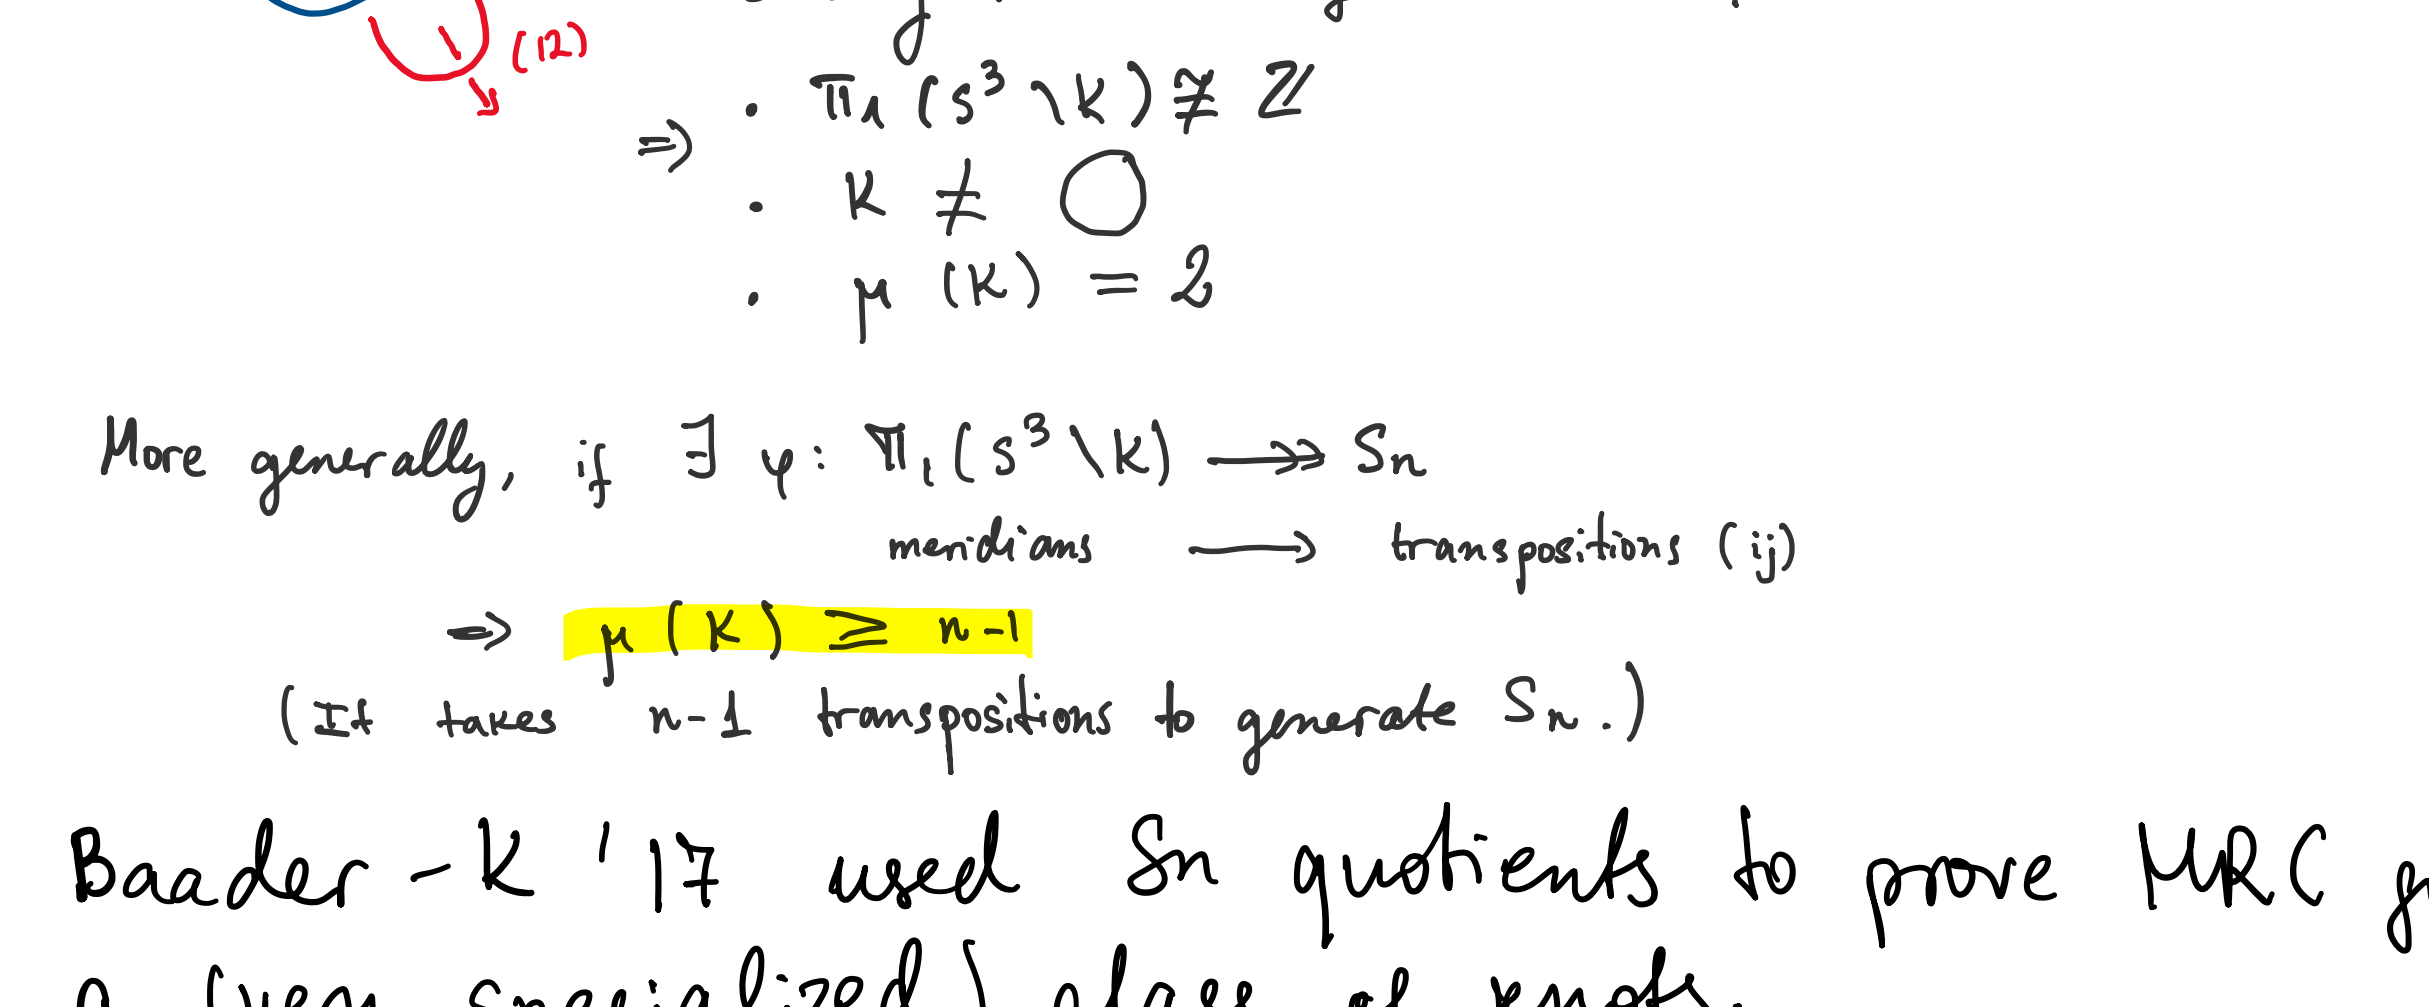 (12)
· π₁(S³\K) ≇ ℤ
⇒
· K ≠ ◯
· μ(K) = 2
More generally, if ∃ φ: π₁(S³\K) ↠ Sn
meridians ⟶ transpositions (ij)
⇒ μ(K) ≥ n-1
(It takes n-1 transpositions to generate Sn.)
Baader-K '17 used Sn quotients to prove MRC
a (very specialized) class of knots.